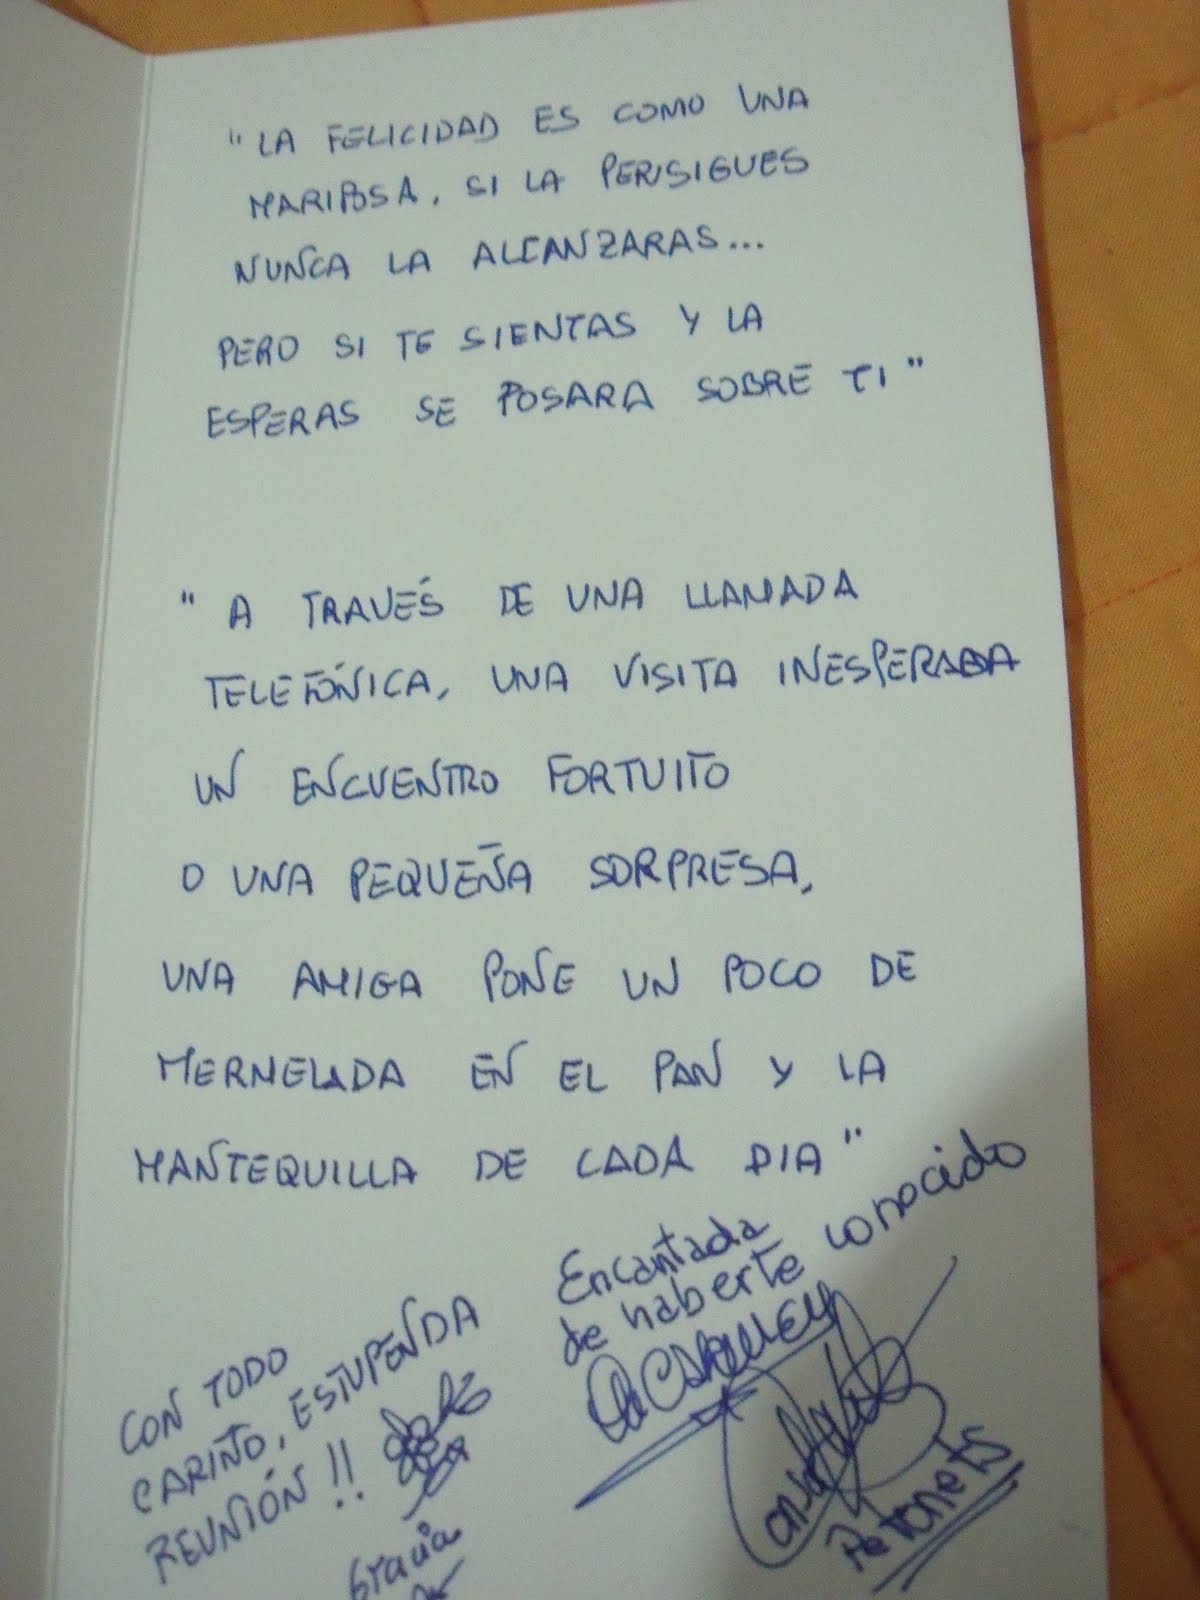 "LA FELICIDAD ES COMO UNA
MARIPOSA, SI LA PERSIGUES
NUNCA LA ALCANZARAS...
PERO SI TE SIENTAS Y LA
ESPERAS SE POSARA SOBRE TI"
"A TRAVÉS DE UNA LLAMADA
TELEFÓNICA, UNA VISITA INESPERADA
UN ENCUENTRO FORTUITO
O UNA PEQUEÑA SORPRESA,
UNA AMIGA PONE UN POCO DE
MERMELADA EN EL PAN Y LA
MANTEQUILLA DE CADA DIA"
Encantada
de haberte conocido
CON TODO
CARIÑO, ESTUPENDA
REUNIÓN!!
Petonets